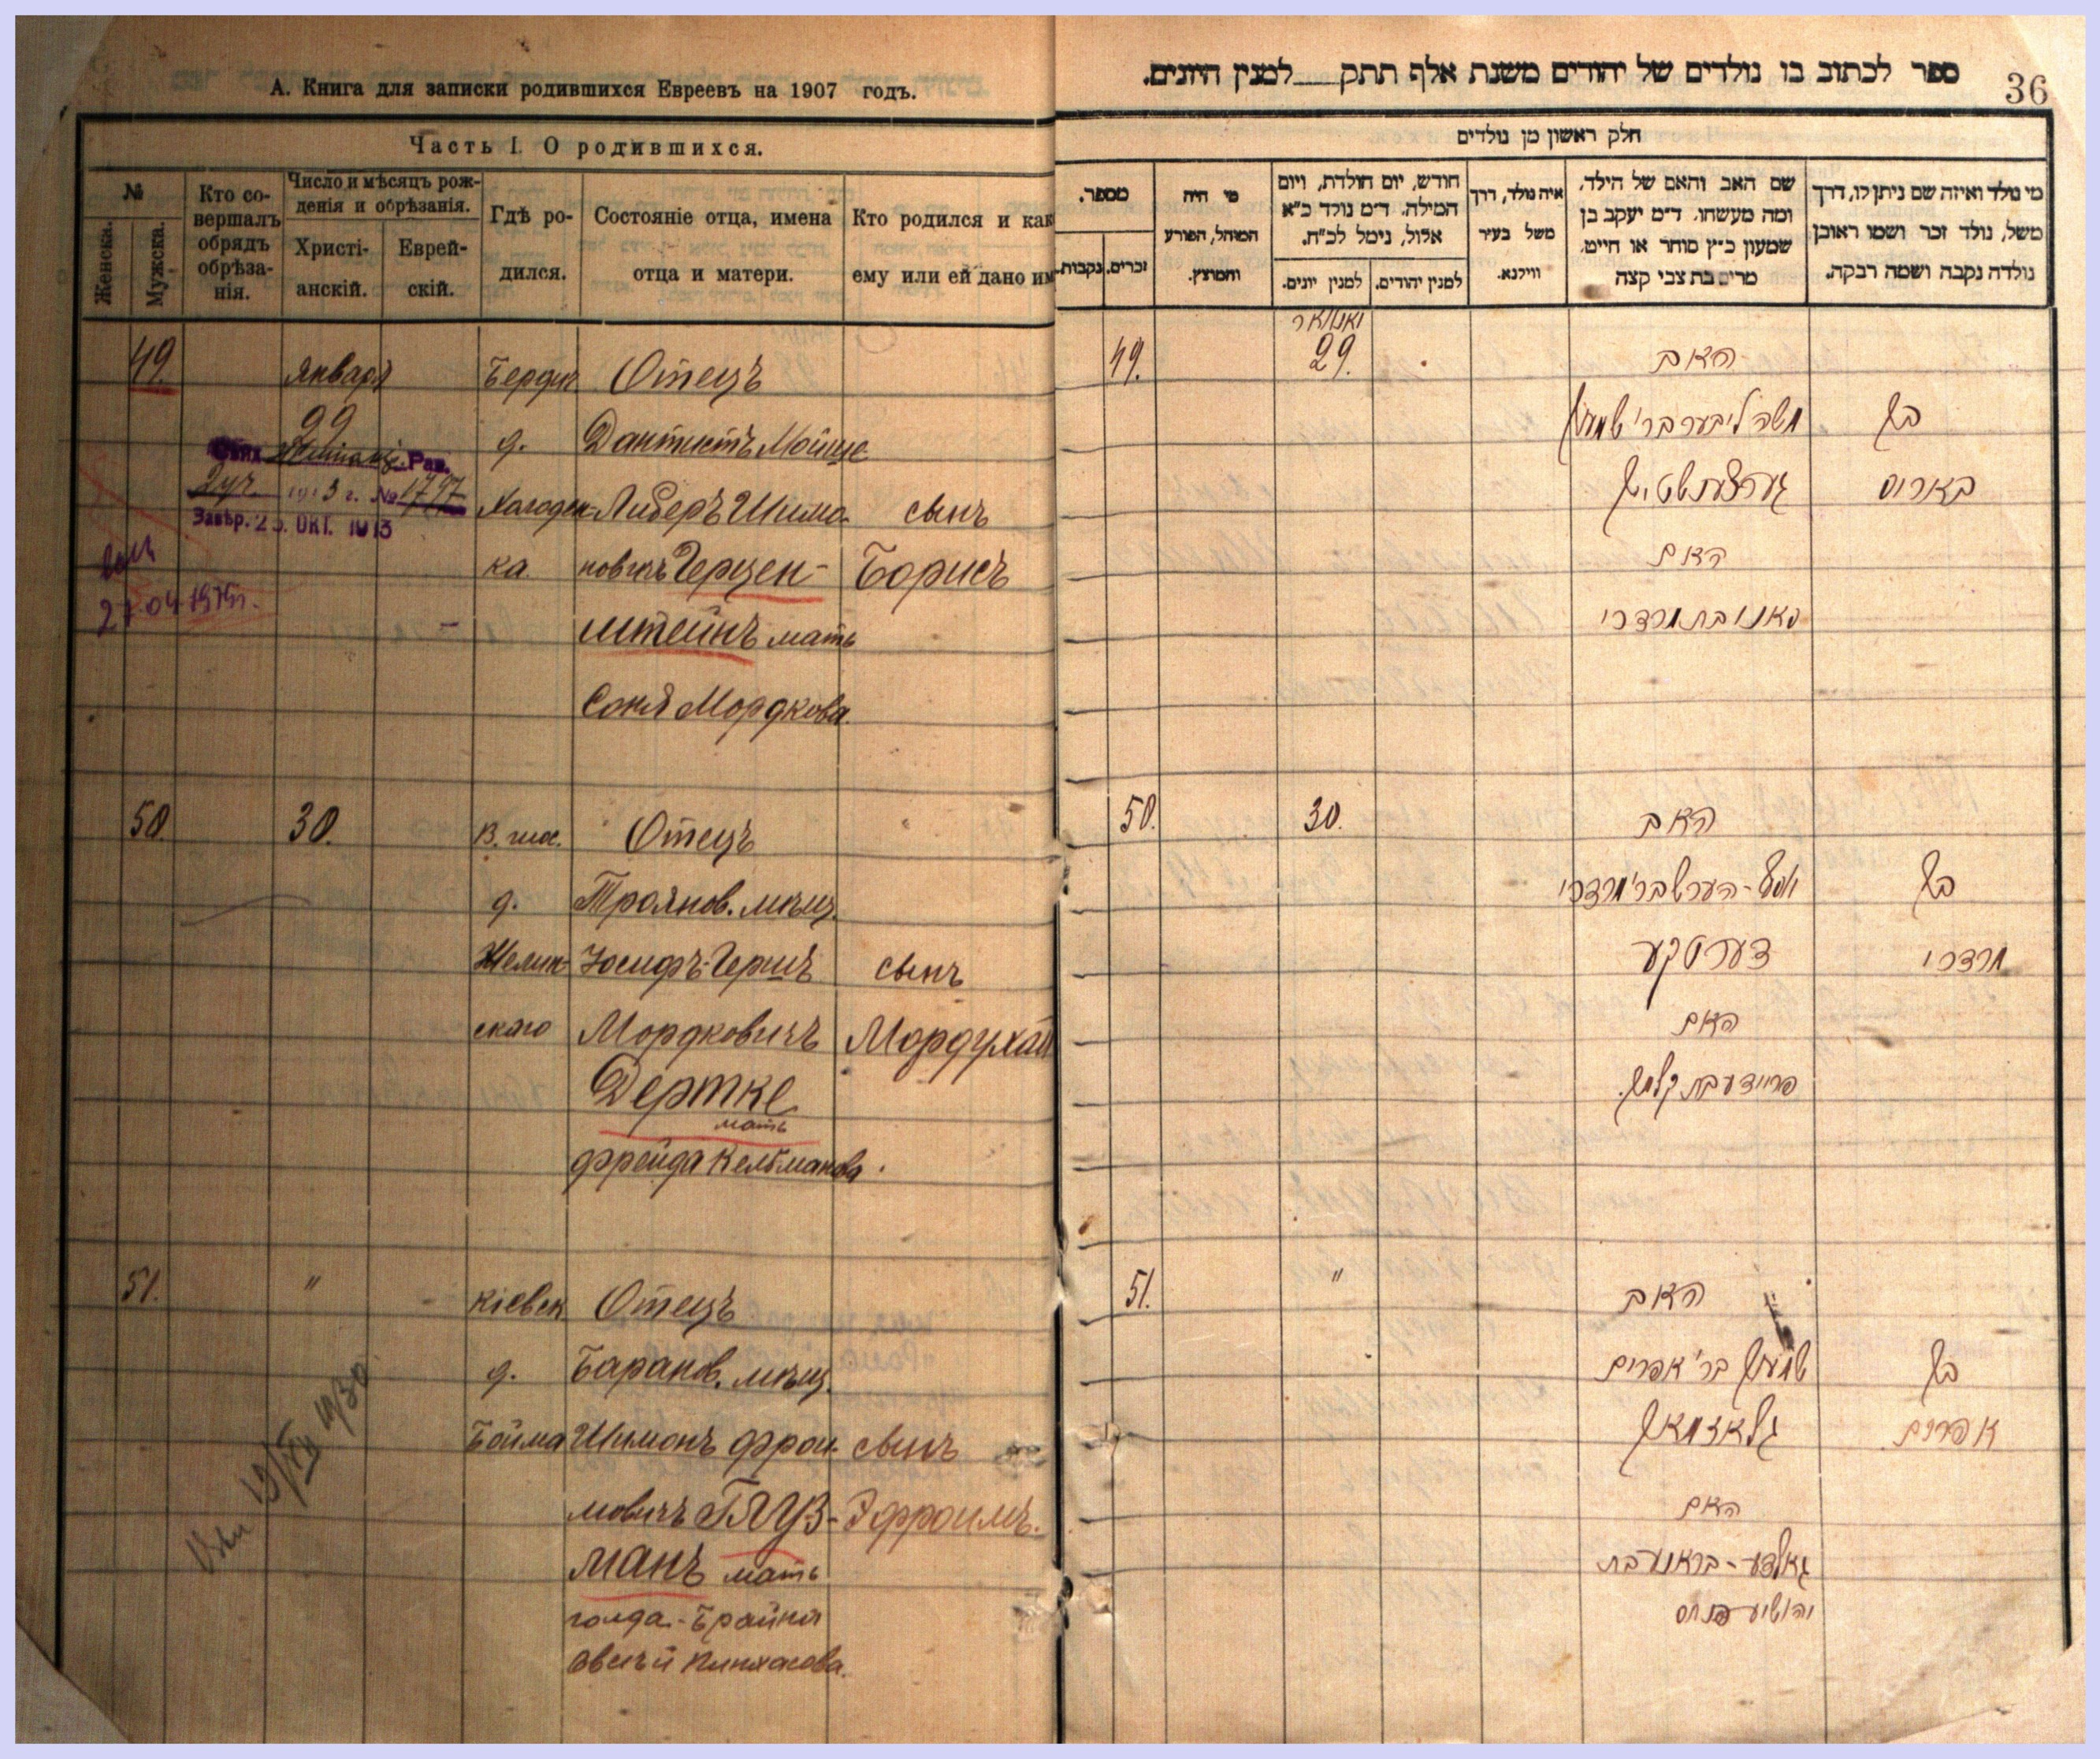 А. Книга для записки родившихся Евреевъ на 1907 годъ.
Часть I. О родившихся.
№
Женска.
Мужска.
Кто со-
вершалъ
обрядъ
обрѣза-
нія.
Число и мѣсяцъ рож-
денія и обрѣзанія.
Христі-
анскій.
Еврей-
скій.
Гдѣ ро-
дился.
Состояніе отца, имена
отца и матери.
Кто родился и как
ему или ей дано им
49.
Января
29
Бердич.
д.
ка.
Отецъ
Дантистъ Мойше
Либеръ Шимо-
новичъ Герцен-
штейнъ мать
Соня Мордкова
сынъ
Борисъ
1913 г. № 1797
Завѣр. 25. ОКТ. 1913
27.04.1975г.
50.
30.
д.
Желин-
скаго
Отецъ
Троянов. мѣщ.
Іосифъ-Гершъ
Мордковичъ
Дертке
мать
Фрейда Кельманова.
сынъ
Мордухай
51.
"
Кіевск.
д.
Бойма
Отецъ
Баранов. мѣщ.
Шимонъ Фрои-
мовичъ Глуз-
манъ мать
Голда-Брайна
Овсѣй Пинхасова.
сынъ
Эфроимъ.
19/XII 1930
ספר לכתוב בו נולדים של יהודים משנת אלף תתק למנין היונים.
36
חלק ראשון מן נולדים
מי נולד ואיזה שם ניתן לו, דרך
משל, נולד זכר ושמו ראובן
נולדה נקבה ושמה רבקה.
שם האב והאם של הילד,
ומה מעשהו. ד״מ יעקב בן
שמעון כ״ץ סוחר או חייט,
מרים בת צבי קצה
איה נולד, דרך
משל בעיר
ווילנא.
חודש, יום הולדת, ויום
המילה. ד״מ נולד כ״א
אלול, נימל לכ״ח.
למנין יהודים.
למנין יונים.
מי היה
המוהל, הפורע
והמוצץ.
מספר.
זכרים.
נקבות.
49.
יאנואר
29.
האב
משה ליבער בר' שמעון
גערצענשטיין
האם
סאניא בת מרדכי
בן
בארוס
50.
30.
האב
יוסף-הערש בר' מרדכי
דערטקע
האם
פריידע בת קלמן.
בן
מרדכי
51.
"
האב
שמעון בר' אפרים
גלאזמאן
האם
גאלדע-בראניע בת
יהושיע פנחס
בן
אפרים